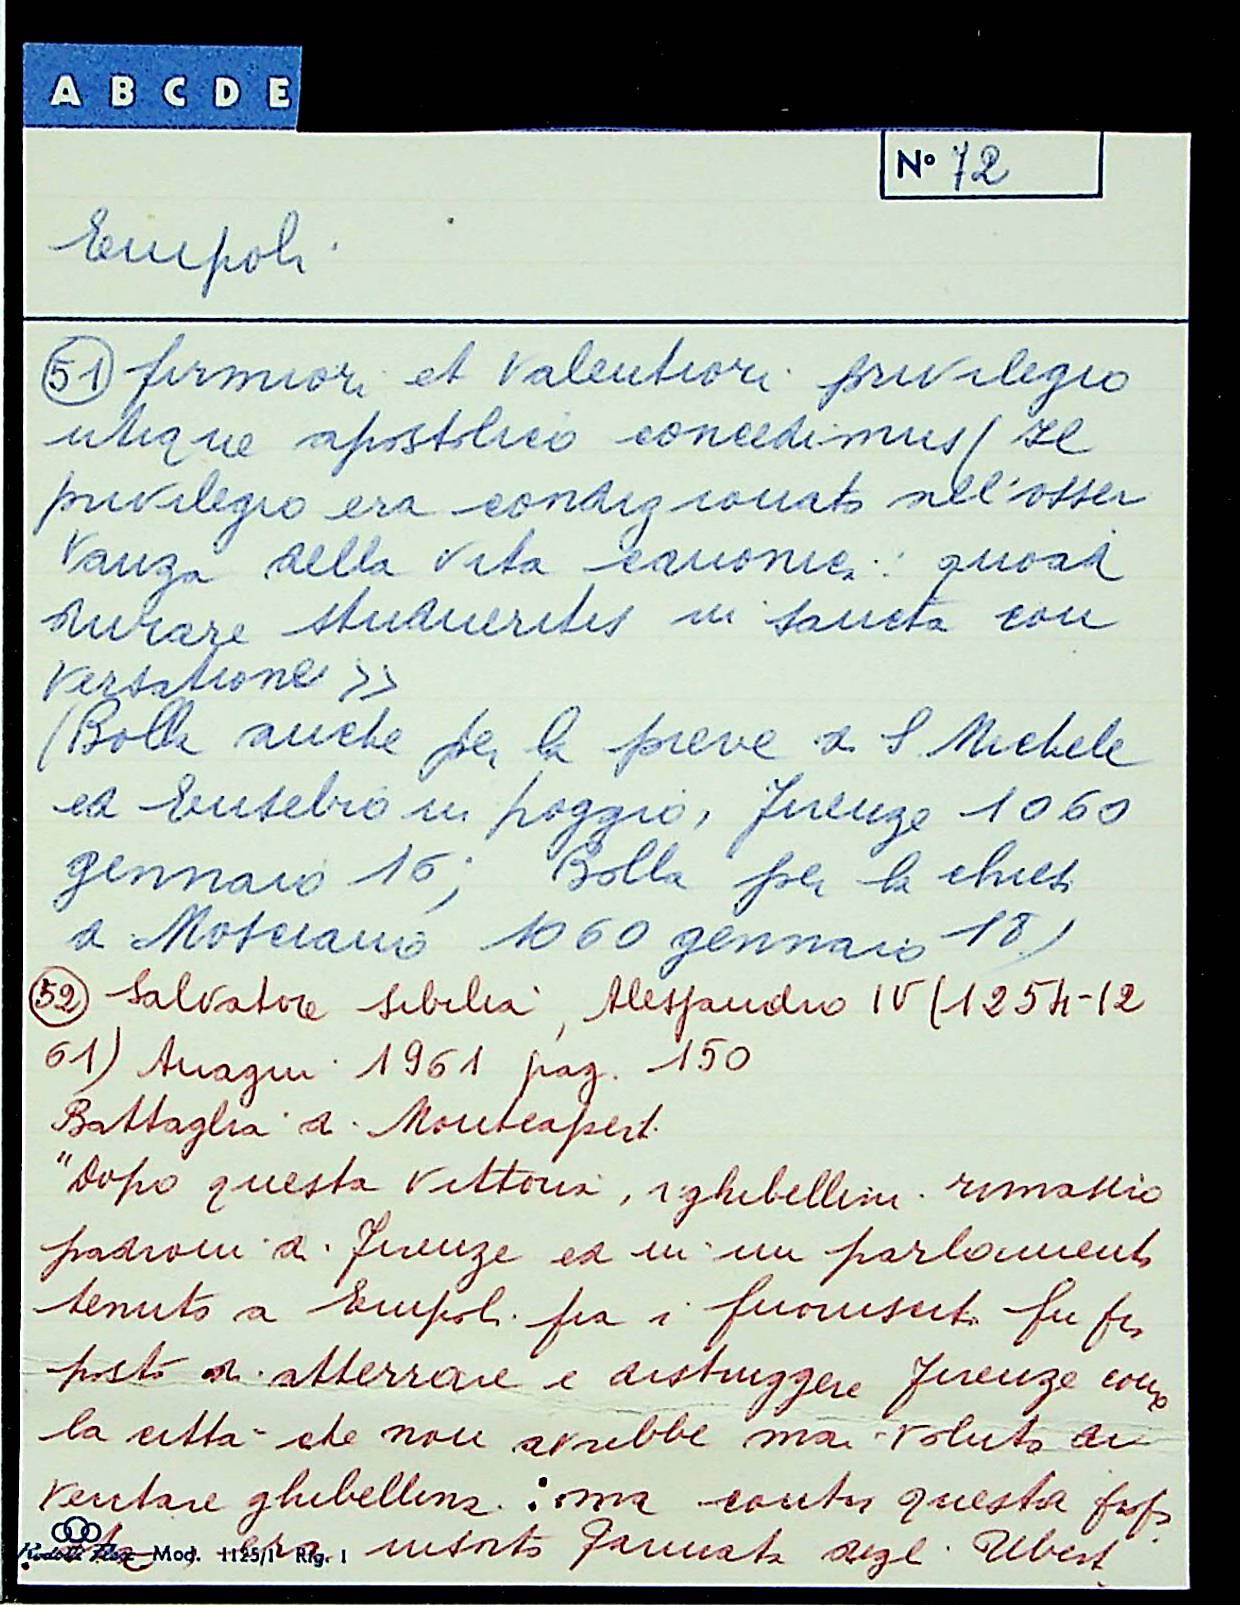 A B C D E
N° 72
Empoli
51 firmiori et valentiori privilegio
utique apostolico concedimus ( Il
privilegio era condizionato nell'osser
vanza della vita canonica: quoad
durare studueritis in sancta con
versatione >>
(Bolla anche per la pieve di S Michele
ed Eusebio in poggio, Firenze 1060
gennaio 16; Bolla per la chiesa
di Mosciano 1060 gennaio 18)
52 Salvatore Sibilia, Alessandro IV (1254-12
61) Anagni 1961 pag. 150
Battaglia di Montaperti
"Dopo questa vittoria, i ghibellini rimasero
padroni di Firenze ed in un parlamento
tenuto a Empoli fra i fuorusciti fu pro
posto di atterrare e distruggere Firenze come
la città che non avrebbe mai voluto di
ventare ghibellina: ma contro questa prop
osta era insorto Farinata degli Uberti
Mod. 1125/1 Rig. 1